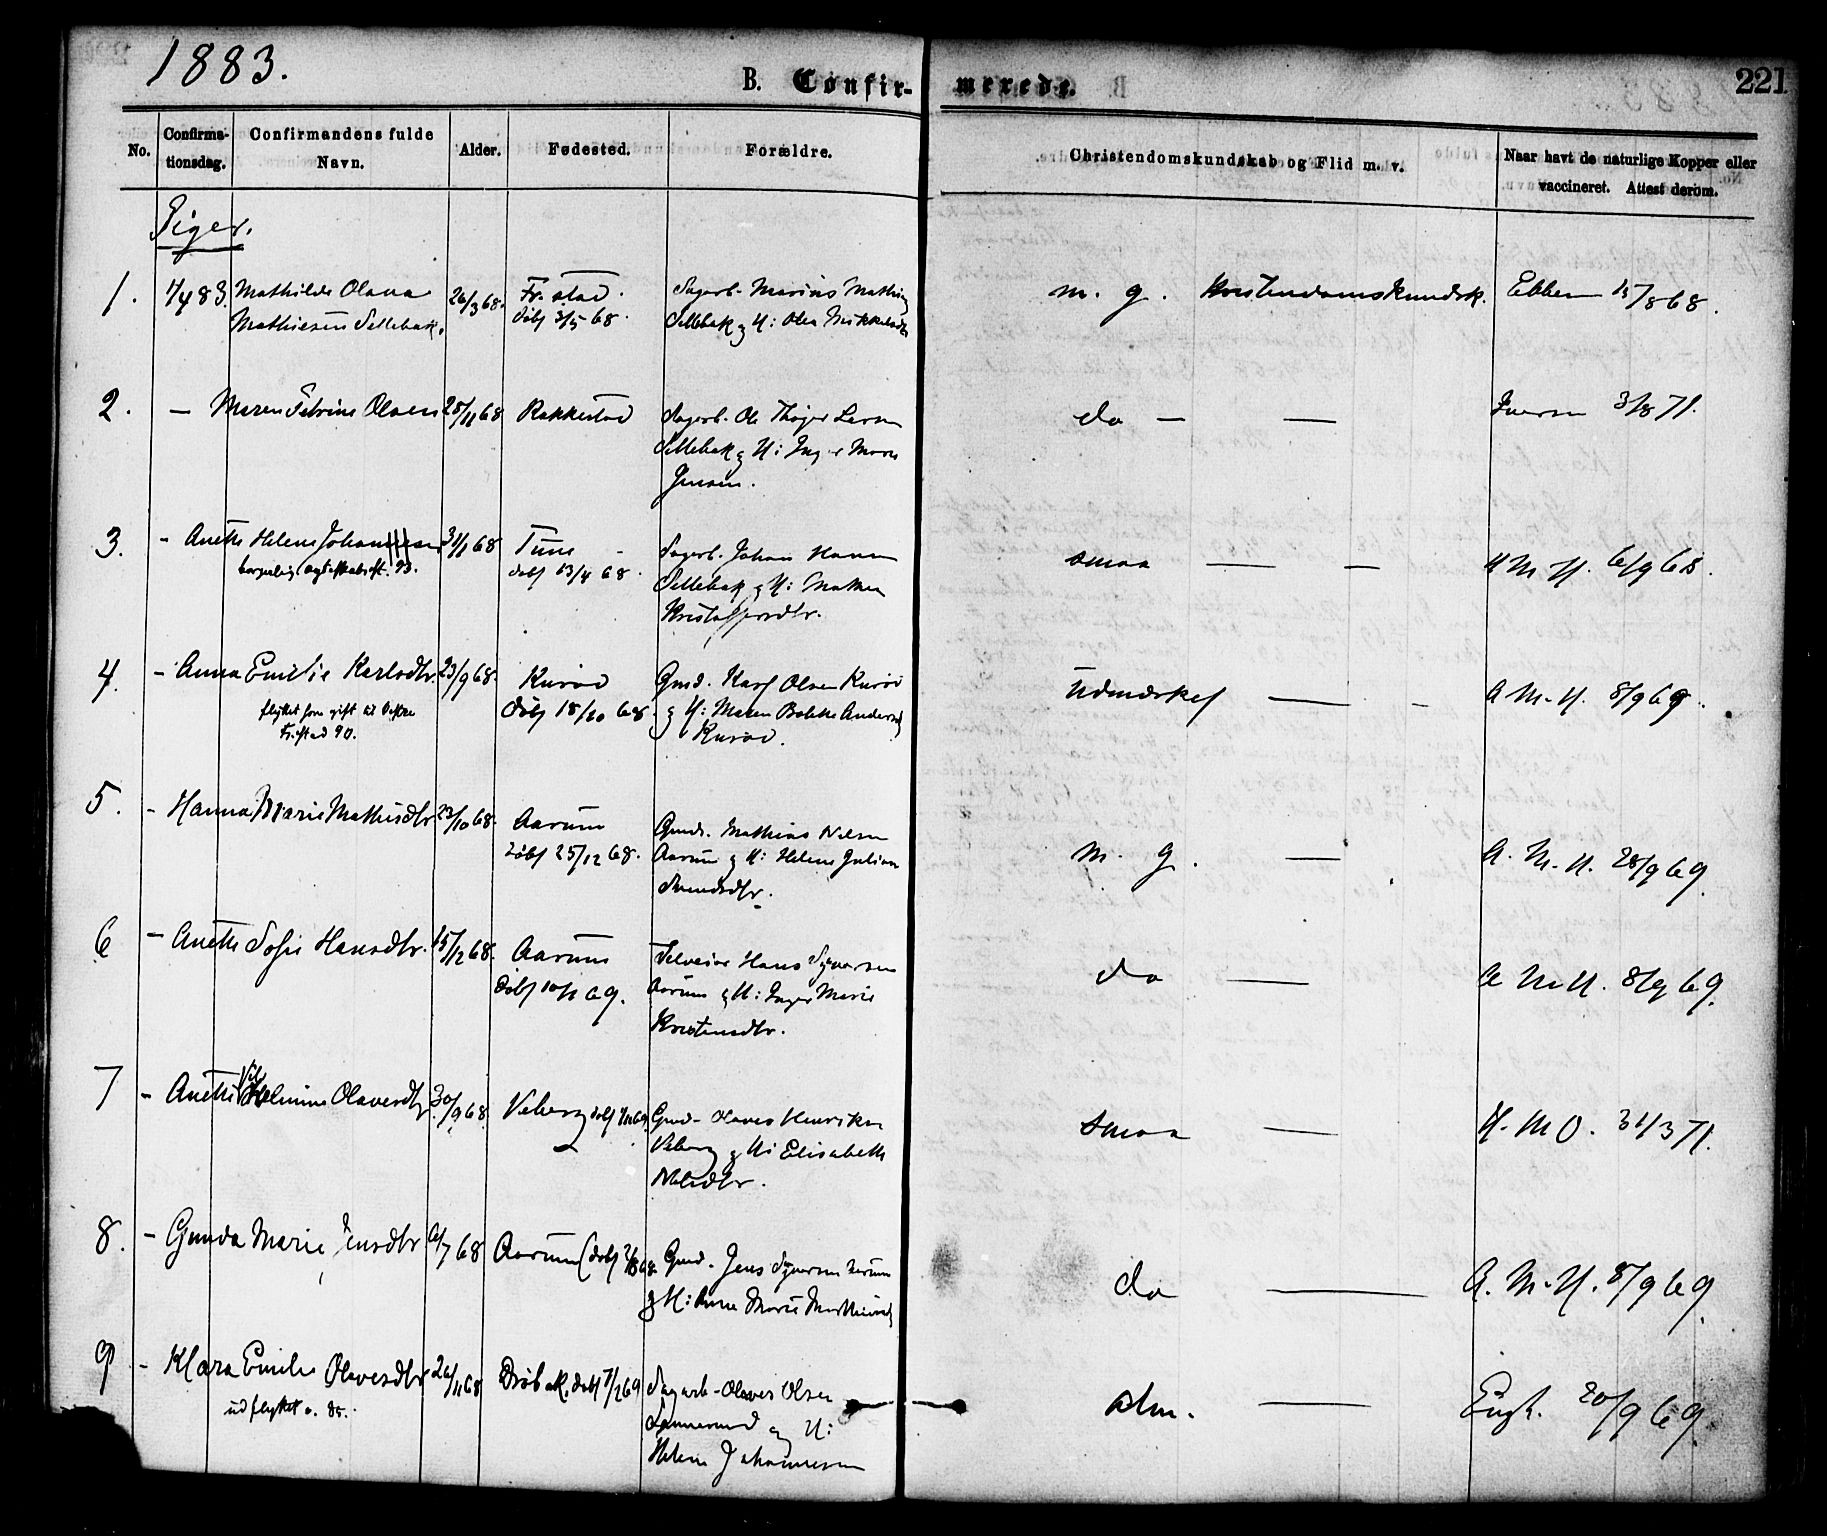 1883.
B. Confirmerede.
221
No.
Confirmationsdag.
Confirmandens fulde Navn.
Alder.
Fødested.
Forældre.
Christendomskundskab og Flid m. v.
Naar havt de naturlige Kopper eller vaccineret. Attest derom.
Piger.
1. 1/4 83. Mathilde Olava
Mathiesen Sellebak.
26/3 68. Fr.stad.
døbt 3/5 68.
Sagarb. Marius
Sellebak og H: Olea
m. g. Kristendomskundsk. 15/8 68.
2. — Maren Petrine Olsen 28/11 68 Rakkestad
Sagarb. Ole Larsen
Sellebak og H: Inger Marie
Jensen.
do — — Iversen 3/8 71.
3. - Anette Helene 31/1 68 Tune
døbt 13/4 68.
Sagarb. Johan Hansen
Sellebak og H: Mathea
Kristoffersdtr.
smaa — — A M H. 6/9 68.
4. - Anna Emilie Karlsdtr. 23/9 68.
flyttet som gift til
Fr.stad 90.
Kurød
Døbt 18/10 68.
Gmd. Karl Olsen Kurød
og H: Maren Andersd
Kurød.
Udmærket — - A M. H. 8/9 69.
5. - Hanna Marie Mathisdtr 23/10 68. Aarum
døbt 25/12 68.
Gmd. Mathias Nilsen
Aarum og H: Helene Juliane
Svendsdtr.
m. g. — A. M. H. 28/9 69.
6 - Anette Sofie Hansdtr. 15/12 68. Aarum
Døbt 10/1 69.
Selveier Hans Syversen
Aarum og H: Inger Marie
Kristensdtr.
do — A M H. 8/9 69.
7 - Anette Vilhelmine Olavesdtr 30/9 68 Veberg
Gmd. Olaves Henriksen
Veberg og H: Elisabeth
Nilsdtr.
smaa — H. M O. 31/3 71.
8. - Gunda Marie Jensdtr 6/7 68 Aarum
Gmd. Jens Syversen Aarum
og H: Anne Marie
do — A. M. H. 8/9 69.
9 - Klara Emilie Olavesdtr 26/11 68
udflyttet
Drøbak. døbt 7/2 69
Sagarb. Olaves Olsen
og H:
Helene Johannesen
alm. — Engh. 20/9 69.